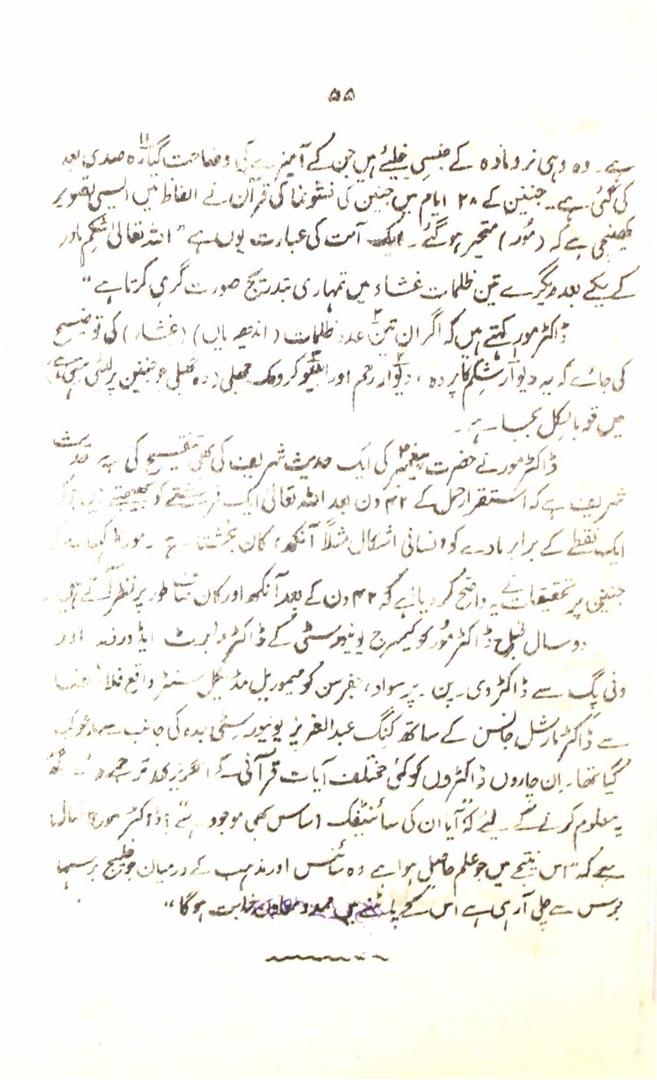 ۵۵
ہے۔ وہ وہی نر و مادہ کے جنسی خلیئے ہیں جن کے آمیزے کی وضاحت گیارہ صدی بعد
کی گئی ہے۔ جنین کے ۲۸ ایام میں جنین کی نشوونما کی قرآن نے الفاظ میں ایسی تصویر
کھینچی ہے کہ (مور) متحیر ہو گئے۔ ایک آیت کی عبارت یوں ہے "اللہ تعالیٰ شکم مادر
کے یکے بعد دیگرے تین ظلمات غشاء میں تمہاری بتدریج صورت گری کرتا ہے"
ڈاکٹر مور کہتے ہیں کہ اگر ان تین عدد ظلمات (اندھیریاں) (غشاء) کی توضیح
کی جائے کہ یہ دیوار شکم کا پردہ، دیوار رحم اور جھلی (وہ جھلی جو جنین پر لپٹی رہتی ہے)
ہیں تو بالکل بجا ہے۔
ڈاکٹر مور نے حضرت پیغمبر کی ایک حدیث شریف کی بھی تنقیح کی ہے حدیث
شریف ہے کہ استقرار حمل کے ۴۲ دن بعد اللہ تعالیٰ ایک فرشتے کو بھیجتے ہیں
ایک نقطے کے برابر مادے کو انسانی اشکال مثلاً آنکھ، کان بخشتا ہے۔ مور کا کہنا ہے کہ
جنین پر تحقیقات نے یہ واضح کر دیا ہے کہ ۴۲ دن کے بعد آنکھ اور کان طور پر نظر آتے ہیں۔
دو سال قبل ڈاکٹر مور کو کیمبرج یونیورسٹی کے ڈاکٹر رابرٹ ایڈورڈز اور
ونی پگ سے ڈاکٹر وی۔ پن۔ پرسواد، جفرسن کو میموریل مڈیکل سنٹر واقع
سے ڈاکٹر مارشل جانسن کے ساتھ کنگ عبدالعزیز یونیورسٹی جدہ کی جانب سے مدعو کیا
گیا تھا۔ ان چاروں ڈاکٹروں کو کئی مختلف آیات قرآنی کے انگریزی ترجمے دئے گئے
یہ معلوم کرنے کے لیئے کہ آیا ان کی سائنٹفک اساس بھی موجود ہے؟ ڈاکٹر مور کا خیال
ہے کہ "اس نتیجے میں جو علم حاصل ہوا ہے وہ سائنس اور مذہب کے درمیان جو خلیج برسہا
برس سے چلی آ رہی ہے اس کے پاٹنے میں ممد و معاون ثابت ہو گا"